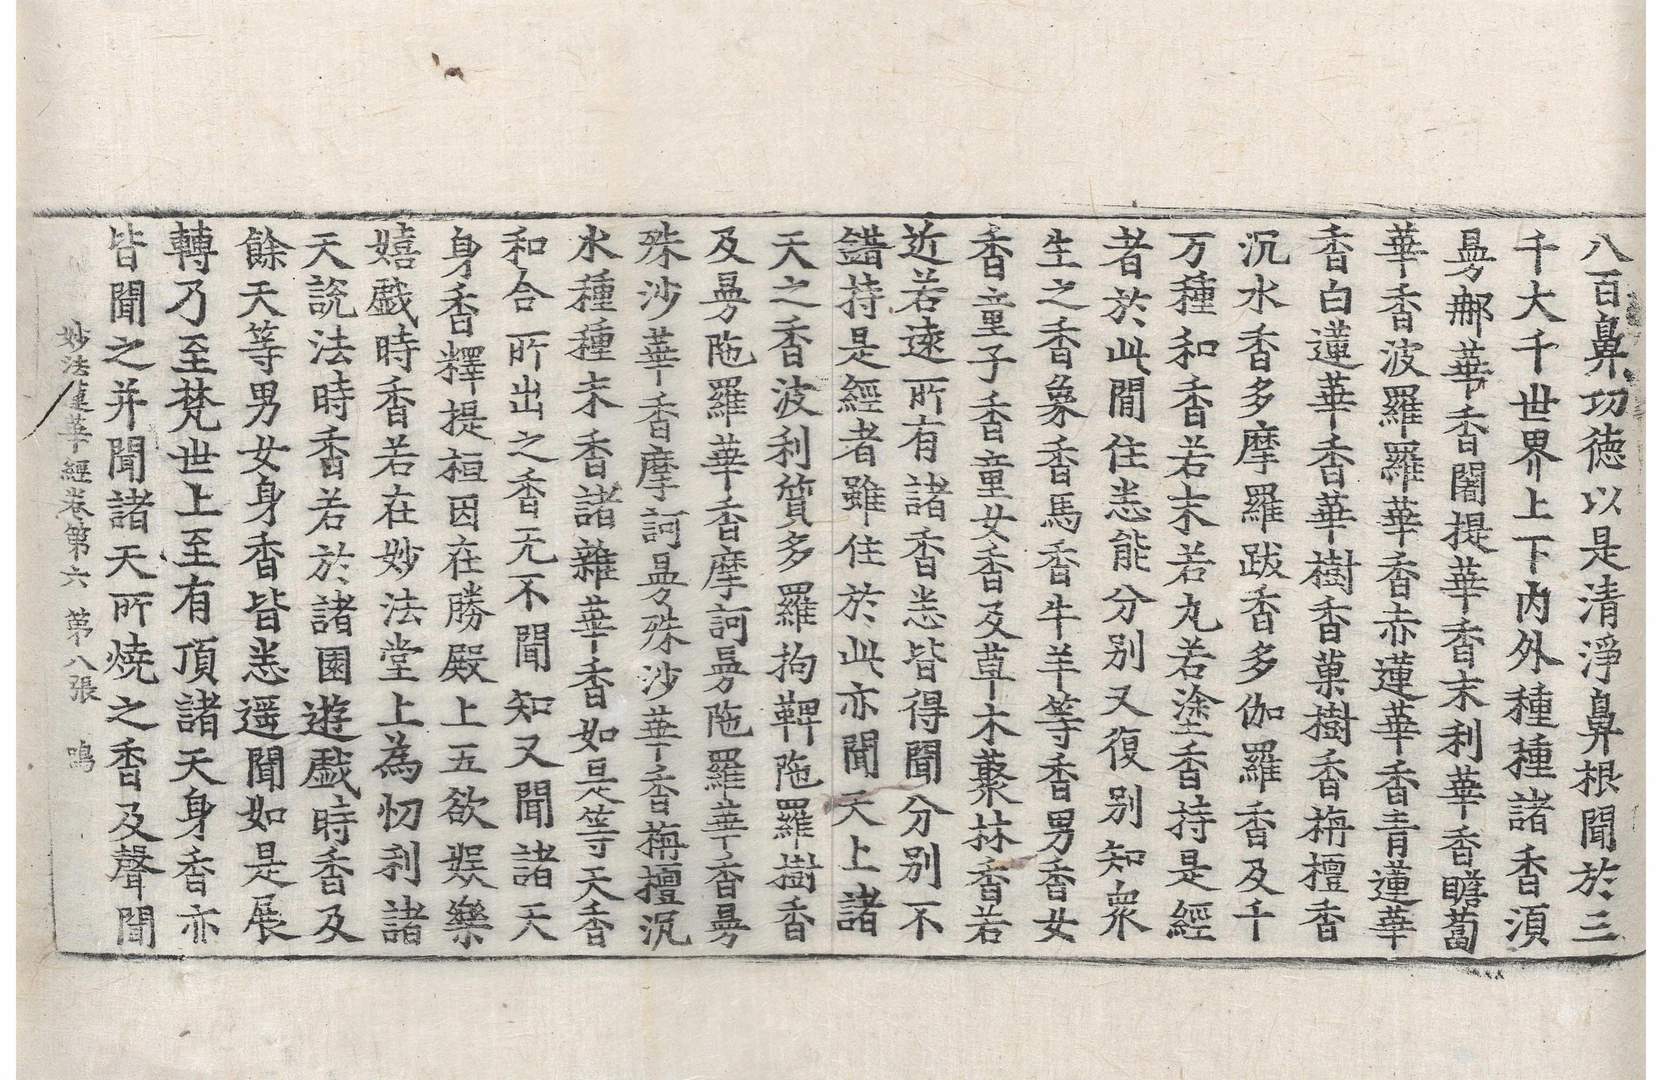 八百鼻功德以是清淨鼻根聞於三
千大千世界上下內外種種諸香須
曼那華香闍提華香末利華香瞻蔔
華香波羅羅華香赤蓮華香青蓮華
香白蓮華香華樹香菓樹香栴檀香
沉水香多摩羅跋香多伽羅香及千
万種和香若末若丸若塗香持是經
者於此間住悉能分別又復別知衆
生之香象香馬香牛羊等香男香女
香童子香童女香及草木藂林香若
近若遠所有諸香悉皆得聞分別不
錯持是經者雖住於此亦聞天上諸
天之香波利質多羅拘鞞陁羅樹香
及曼陁羅華香摩訶曼陁羅華香曼
殊沙華香摩訶曼殊沙華香栴檀沉
水種種末香諸雜華香如是等天香
和合所出之香无不聞知又聞諸天
身香釋提桓因在勝殿上五欲娛樂
嬉戲時香若在妙法堂上為忉利諸
天說法時香若於諸園遊戲時香及
餘天等男女身香皆悉遥聞如是展
轉乃至梵世上至有頂諸天身香亦
皆聞之并聞諸天所燒之香及聲聞
妙法蓮華經卷第六 第八張 鳴